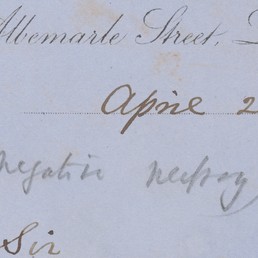 Albemarle Street,
April 2
negative
Sir